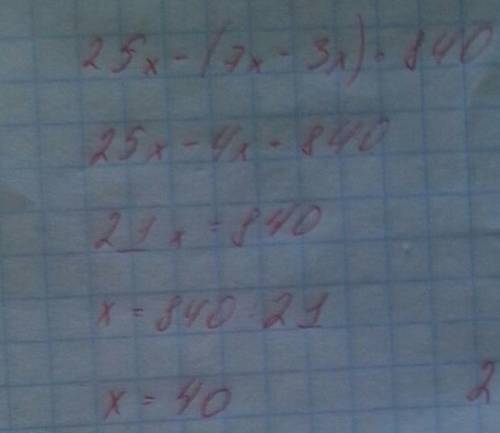 25x - (7x - 3x) = 840
25x - 4x = 840
21x = 840
x = 840 : 21
x = 40
2